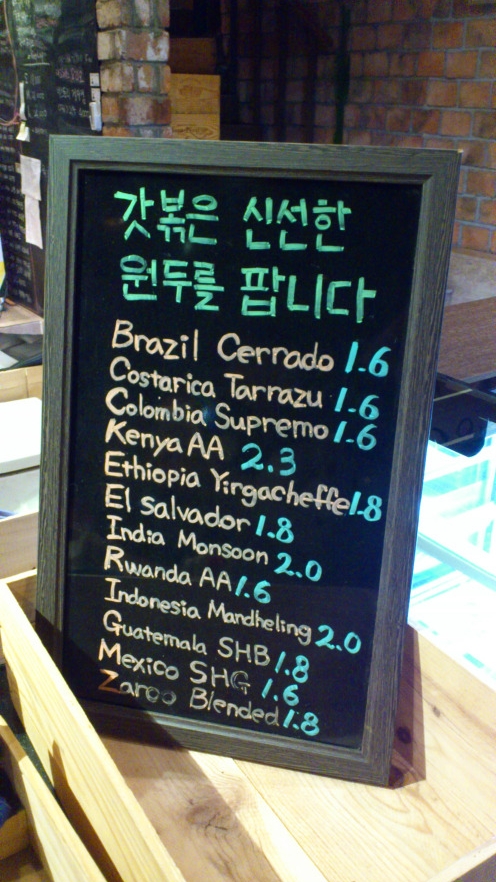 갓볶은 신선한
원두를 팝니다
Brazil Cerrado 1.6
Costarica Tarrazu 1.6
Colombia Supremo 1.6
Kenya AA 2.3
Ethiopia Yirgacheffe 1.8
El salvador 1.8
India Monsoon 2.0
Rwanda AA 1.6
Indonesia Mandheling 2.0
Guatemala SHB 1.8
Mexico SHG 1.6
Blended 1.8